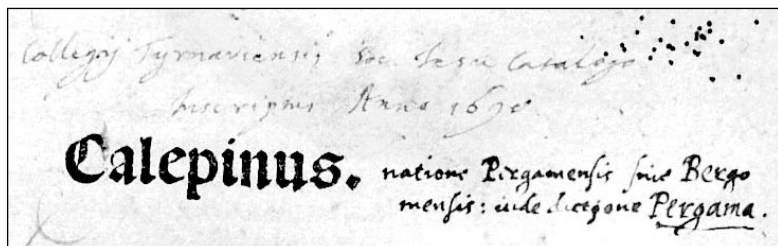 Collegij Tyrnaviensis Soc. Iesu Catalogo
Inscriptus Anno 1690
Calepinus. natione Pergamensis sive Bergo
mensis: vide dictione Pergama.